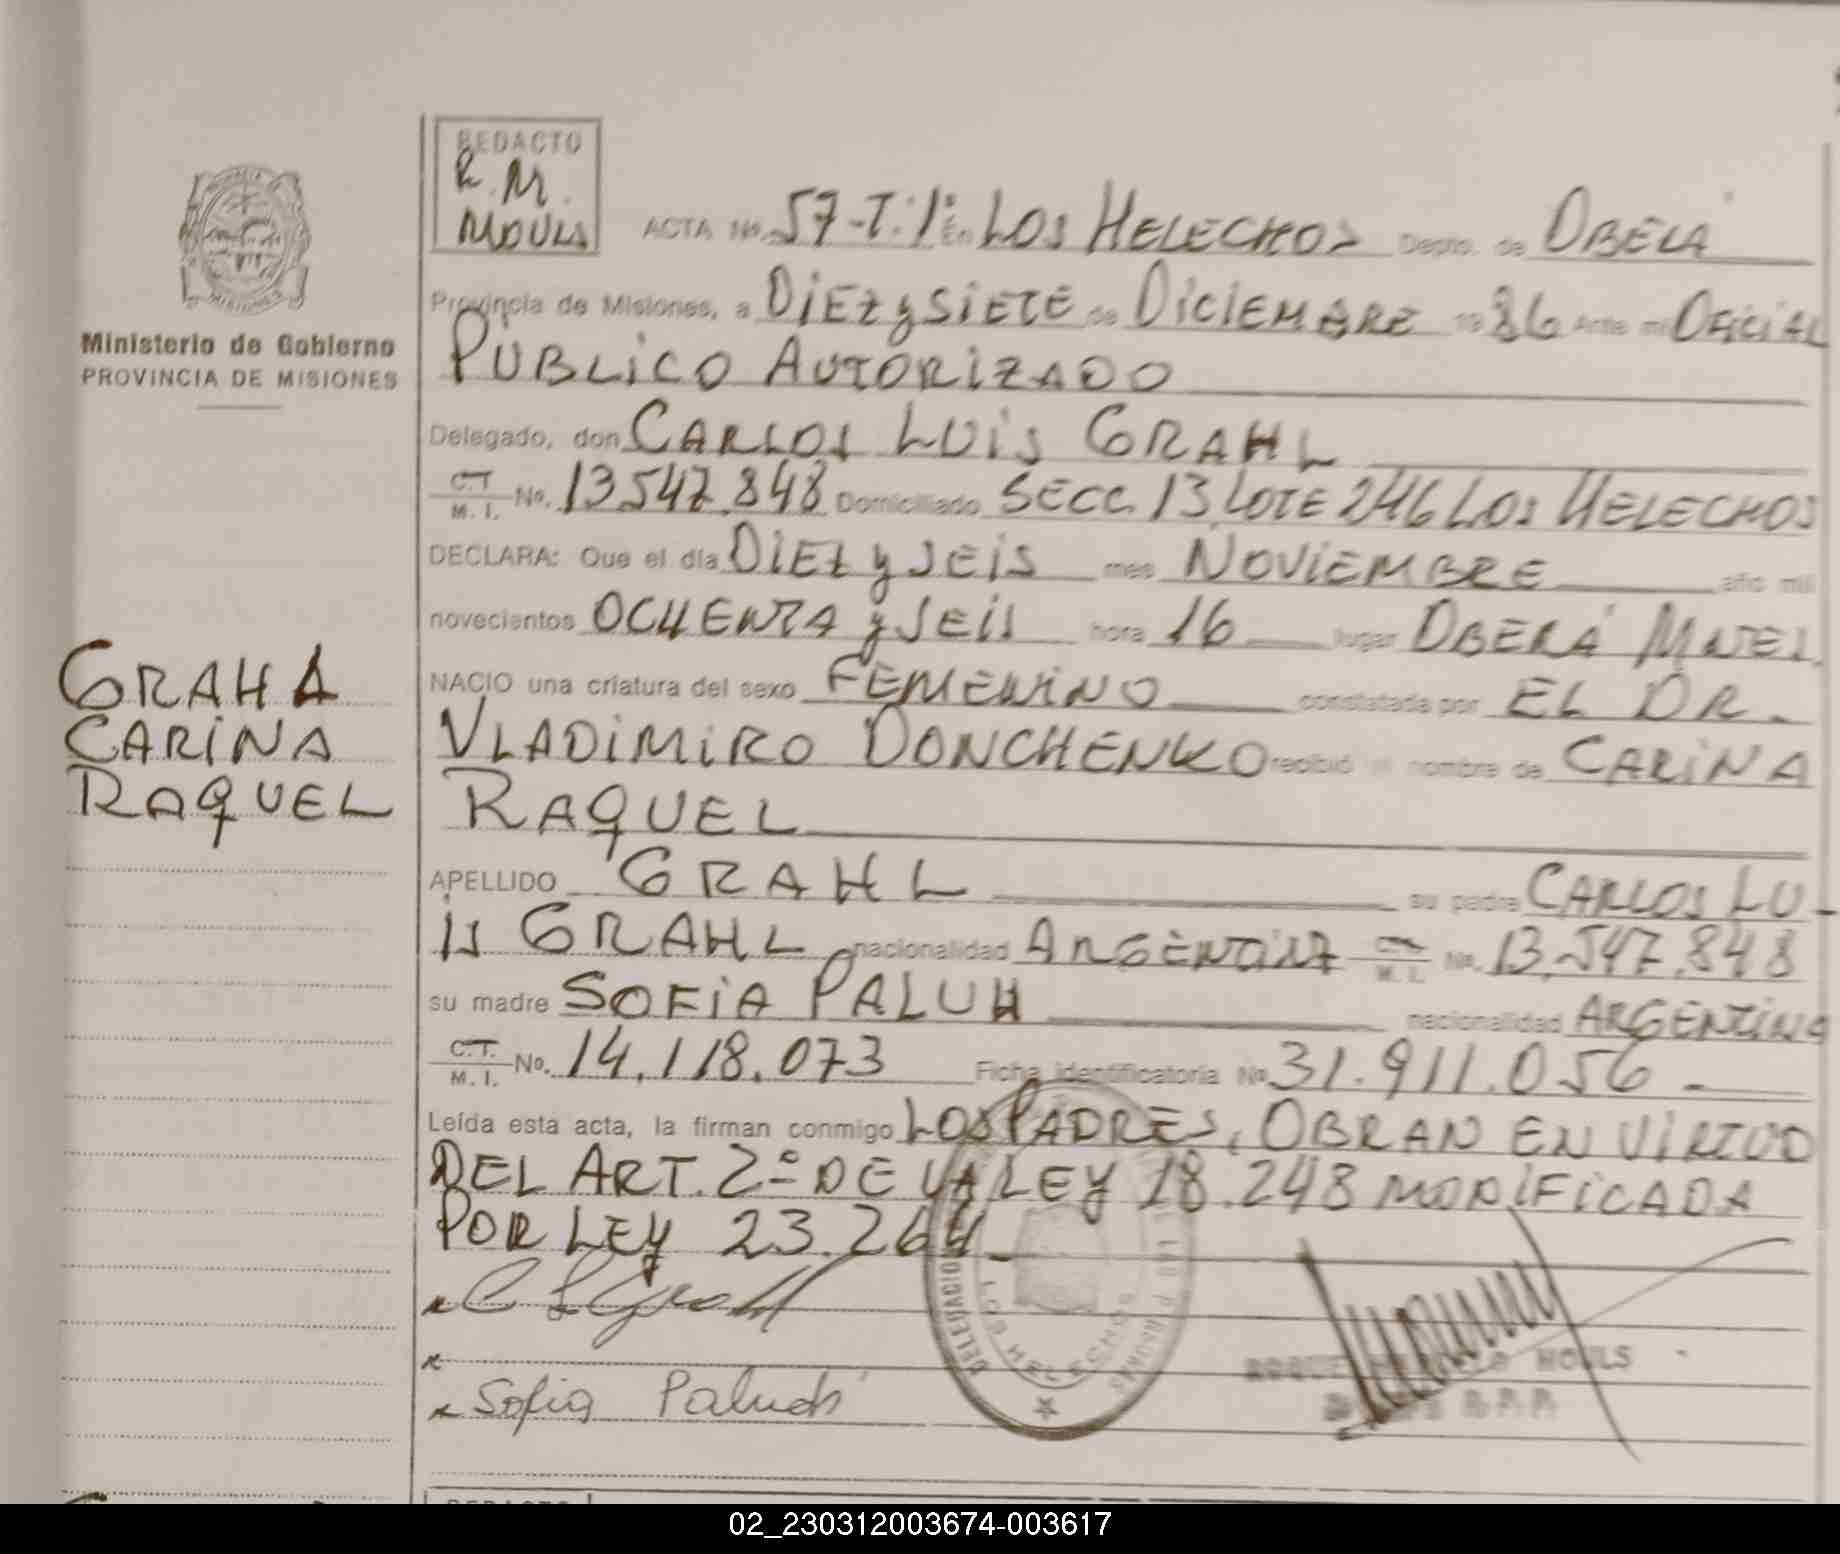 REDACTO
R. M.
MOULS
ACTA No. 57-T: 1: En LOS HELECHOS Depto. de OBERÁ
Provincia de Misiones, a DIEZ y SIETE de DICIEMBRE 19 86 Ante mi OFICIAL
PUBLICO AUTORIZADO
Delegado, don CARLOS LUIS GRAHL
C.T. M. I. No. 13.547.848 Domiciliado SECC. 13 LOTE 246 LOS HELECHOS
DECLARA: Que el día DIEZ y SEIS mes NOVIEMBRE año mil
novecientos OCHENTA y SEIS hora 16 lugar OBERÁ MNES.
NACIO una criatura del sexo FEMENINO constatada por EL DR.
VLADIMIRO DONCHENKO recibió el nombre de CARINA
RAQUEL
APELLIDO GRAHL su padre CARLOS LU-
IS GRAHL nacionalidad ARGENTINA C.T. M. I. No. 13.547.848
su madre SOFIA PALUH nacionalidad ARGENTINA
C.T. M. I. No. 14.118.073 Ficha identificatoria No 31.911.056.-
Leída esta acta, la firman conmigo LOS PADRES, OBRAN EN VIRTUD
DEL ART. 2º DE LA LEY 18.248 MODIFICADA
POR LEY 23.264.-
Sofia Paluch
MOULS
DELEGACION
LOS HELECHOS
DE LAS PERSONAS
PROVINCIA
MISIONES
Ministerio de Gobierno
PROVINCIA DE MISIONES
GRAHL
CARINA
RAQUEL
REDACTO
02_230312003674-003617